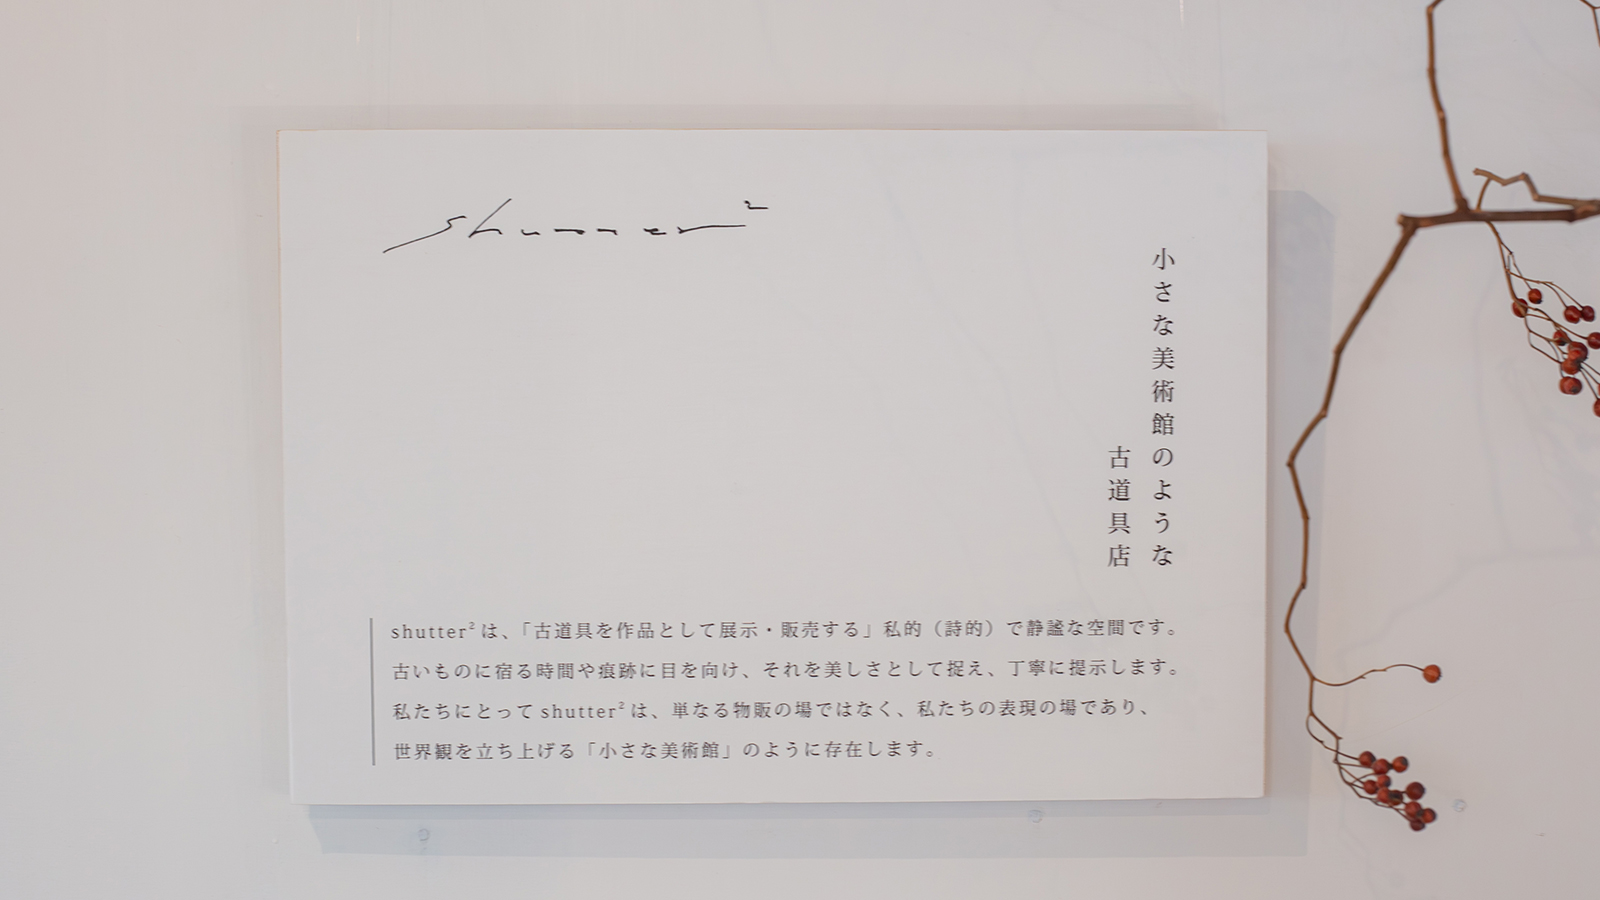 shutter²
小さな美術館のような
古道具店
shutter²は、「古道具を作品として展示・販売する」私的（詩的）で静謐な空間です。
古いものに宿る時間や痕跡に目を向け、それを美しさとして捉え、丁寧に提示します。
私たちにとって shutter²は、単なる物販の場ではなく、私たちの表現の場であり、
世界観を立ち上げる「小さな美術館」のように存在します。